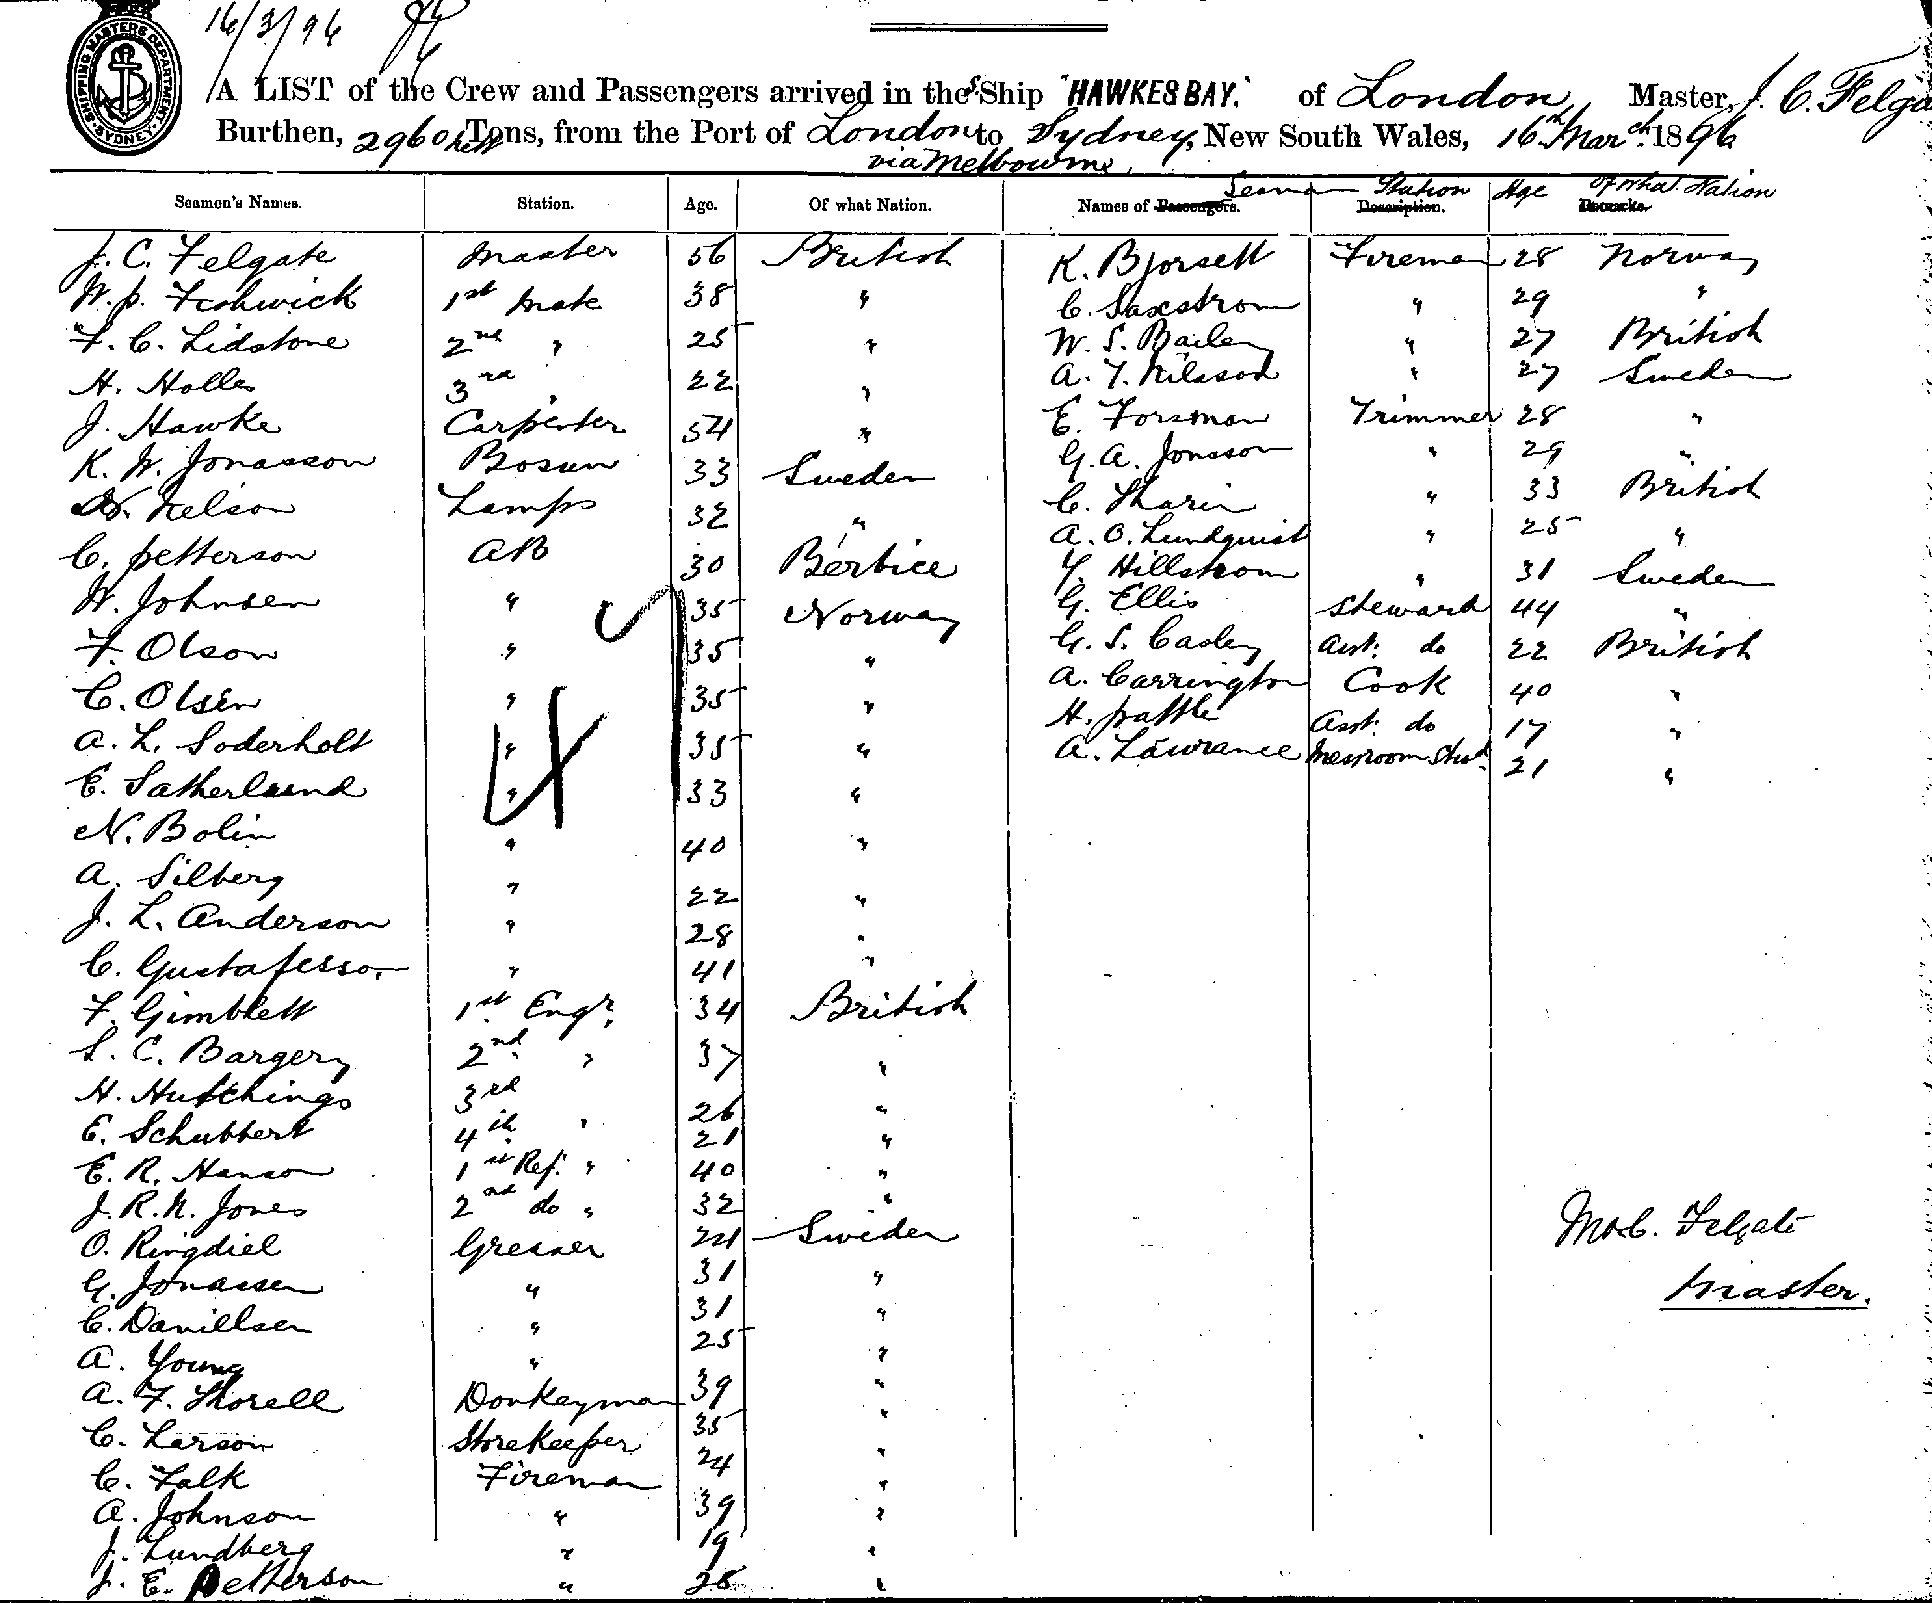 16/3/96
SHIPPING MASTERS DEPARTMENT SYDNEY
A LIST of the Crew and Passengers arrived in the S. Ship "HAWKES BAY." of London, Master, J. C. Felga
Burthen, 2960 Nett Tons, from the Port of London to Sydney, New South Wales, 16th March 1896
via Melbourne
Seamen's Names. Station. Age. Of what Nation. Names of Passengers. Seaman Description. Station Age Remarks. Of what Nation
J. C. Felgate Master 56 British K. Bjorsett Fireman 28 Norway
W. P. Fishwick 1st Mate 38 " C. Saxstrom " 29 "
F. C. Lidstone 2nd " 25 " W. S. Bailey " 27 British
H. Holles 3rd " 22 " A. T. Nilsson " 27 Sweden
J. Hawke Carpenter 54 " E. Forsman Trimmer 28 "
K. W. Jonasson Bosun 33 Sweden G. A. Jonsson " 29 "
N. Nelson Lamps 32 " C. Tharin " 33 British
C. Petterson AB 30 Berbice A. O. Lundquist " 25 "
W. Johnsen " 35 Norway Y. Hillstrom " 31 Sweden
F. Olson " 35 " G. Ellis Steward 44 "
C. Olsen " 35 " G. S. Casley Asst. do 22 British
A. L. Soderholt " 35 " A. Carrington Cook 40 "
E. Satherlund " 33 " H. Prattle Asst. do 17 "
N. Bolin " 40 " A. Lawrance Messroom Stwd. 21 "
A. Silberg " 22 "
J. L. Anderson " 28 "
C. Gustafesson " 41 "
F. Gimblett 1st Engr. 34 British
S. C. Bargery 2nd " 37 "
H. Hutchings 3rd 26 "
E. Schubbert 4th " 21 "
E. R. Hanson 1st Ref. " 40 "
J. R. N. Jones 2nd do " 32 "
O. Ringdiel Greaser 24 Sweden
G. Jonassen " 31 "
C. Danillsen " 31 "
A. Young " 25 "
A. F. Thorell Donkeyman 39 "
C. Larson Storekeeper 35 "
C. Falk Fireman 24 "
A. Johnson " 39 "
J. Lundberg " 19 "
J. E. Petterson " 28 "
Felgate
Master.